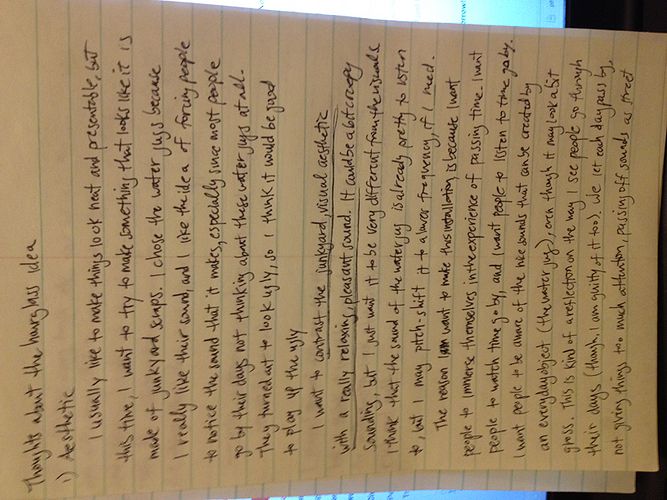 Thoughts about the hourglass idea
1) Aesthetic
I usually like to make things look neat and presentable, but
this time, I want to try to make something that looks like it is
made of junkyard scraps. I chose the water jugs because
I really like their sound and I like the idea of forcing people
to notice the sound that it makes, especially since most people
go by their days not thinking about these water jugs at all.
They turned out to look ugly, so I think it would be good
to play up the ugly
I want to contrast the junkyard, visual aesthetic
with a really relaxing, pleasant sound. It could be a bit creepy
sounding, but I just want it to be very different from the visuals
I think that the sound of the water jug is already pretty to listen
to, but I may pitch-shift it to a lower frequency, if I need.
The reason I want to make this installation is because I want
people to immerse themselves in the experience of passing time. I want
people to watch time go by, and I want people to listen to time go by.
I want people to be aware of the nice sounds that can be created by
an everyday object (the water jug), even though it may look a bit
gross. This is kind of a reflection on the way I see people go through
their days (though, I am guilty of it too). We let each day pass by,
not giving things too much attention, passing off sounds as street